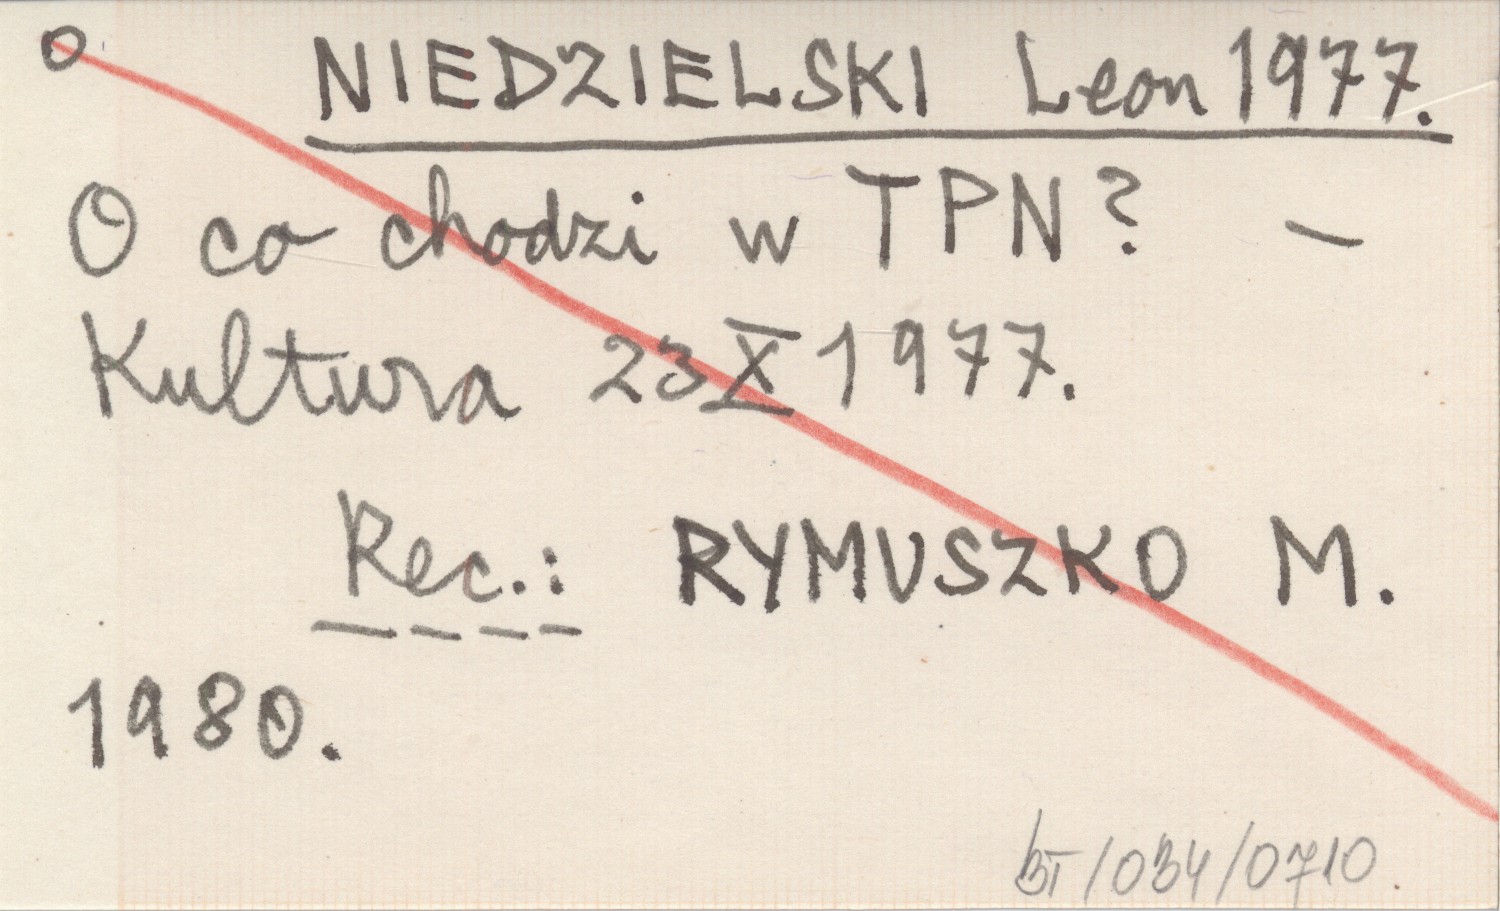 NIEDZIELSKI Leon 1977.
O co chodzi w TPN? –
Kultura 23 X 1977.
Rec.: RYMUSZKO M.
1980.
BT/034/0710.